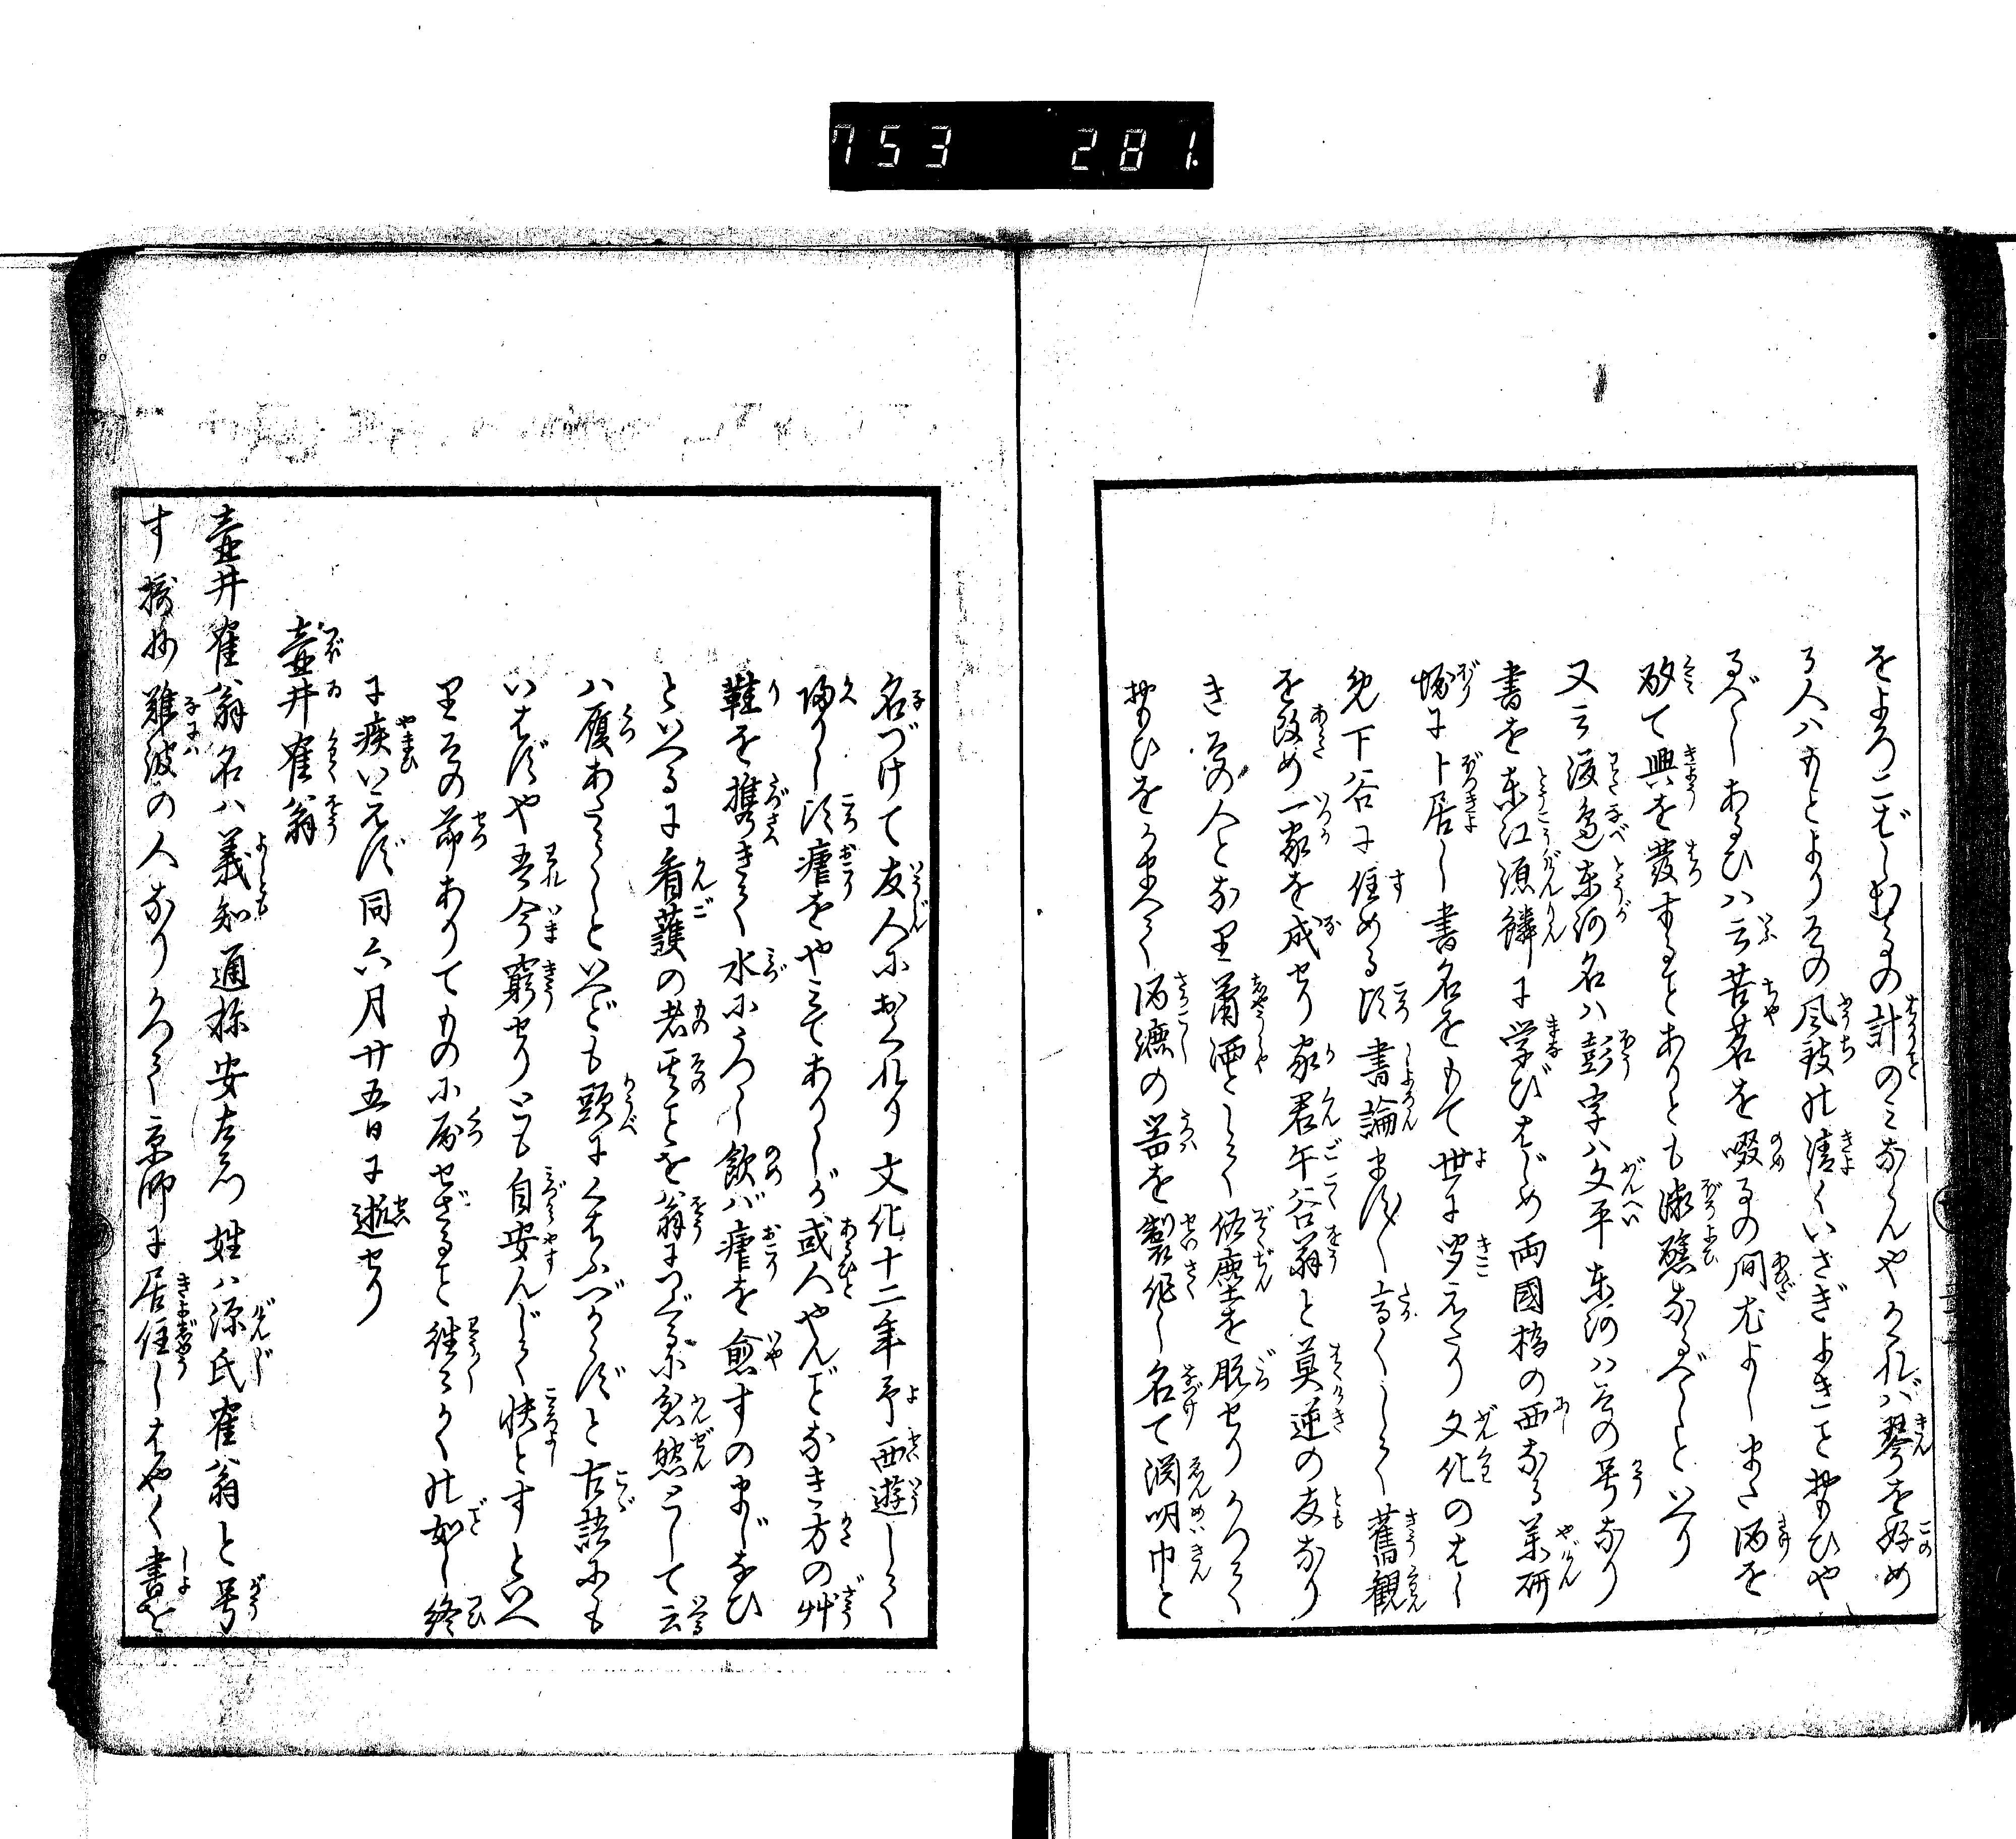 753 281
をよろこばしむるの計のみならんやされば琴を好め
る人はもとよりその風致の清くいさぎよきことおもひや
るべしあるひは云苦茗を啜るの間尤よしまた酒を
酌て興を發することありとも微醺なるべしといへり
又云渡邉東河名は彭字は文平東河はその号なり
書を東江源鱗に学びはじめ両國橋の西なる薬研
堀に卜居し書名をもて世に聞えたり文化のはじ
め下谷に住める頃書論ますます高くして舊観
を改め一家を成せり家君午谷翁と莫逆の友なり
きその人となり蕭洒として俗塵を脱せりかつて
おもひをかまへて酒漉の器を製作し名て淵明巾と
名づけて友人におくれり文化十二年予西遊して
帰りし頃瘧をやみてありしが或人やんごなき方の艸
鞋を携きて水にうつし飲ば瘧を愈すのまじなひ
といへるに看護の者其ことを翁につぐるに忿然として云
履あたらしといへども頭にくはふべからずと古語にも
いはずや吾今窮せりとも自安んじて快とすといへ
りその節ありてものに屈せざること往々かくの如し終
に疾いえず同六月廿五日に逝せり
壷井寉翁
壷井寉翁名は義知通称安左衛門姓は源氏寉翁と号
す摂州難波の人なりかつて京師に居住しはやく書を